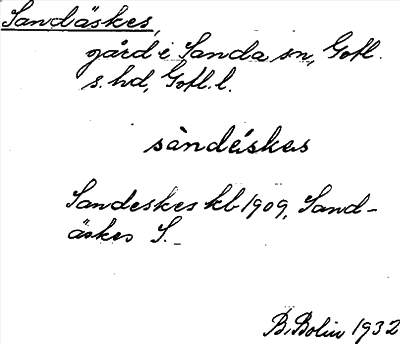 Sandäskes,
gård i Sanda sn, Gotl.
s. hd, Gotl. l.
sàndéskas
Sandeskes kb 1909, Sand-
äskes S.
B. Bolin 1932